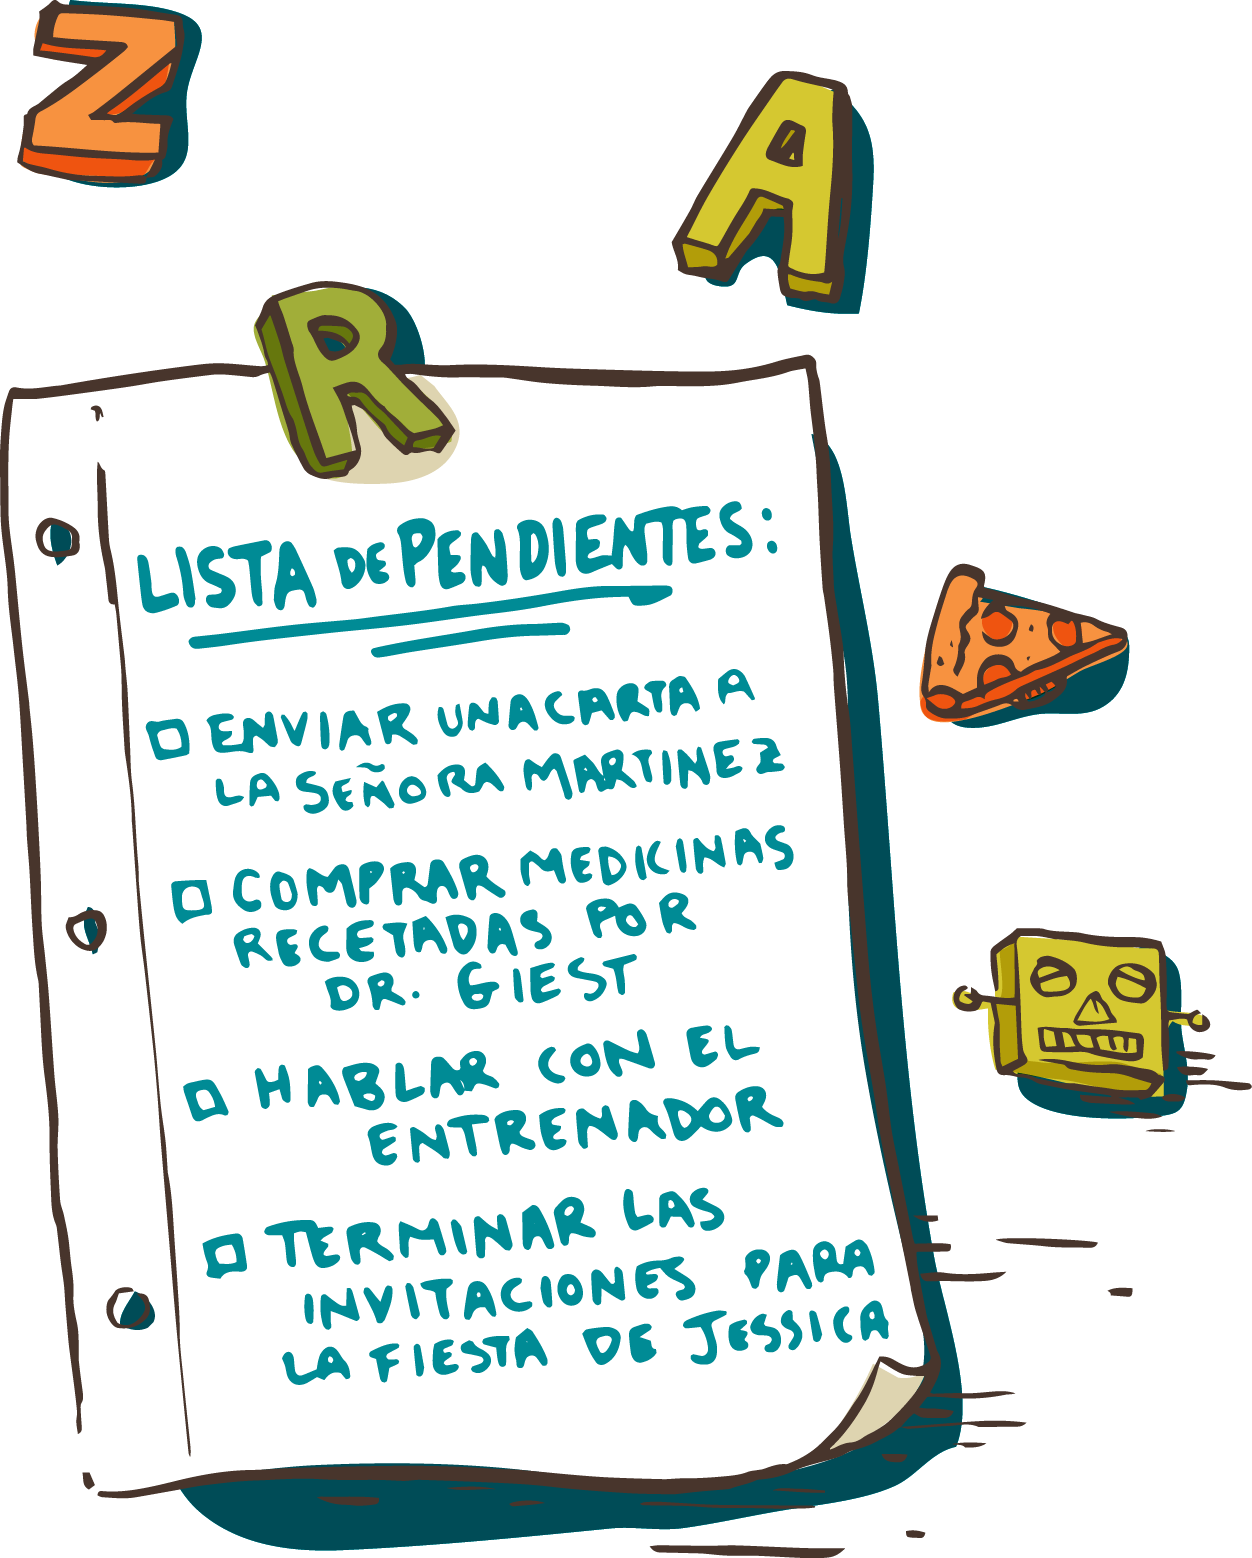 Z
A
R
LISTA DE PENDIENTES:
ENVIAR UNA CARTA A
LA SEÑORA MARTINEZ
COMPRAR MEDICINAS
RECETADAS POR
DR. GIEST
HABLAR CON EL
ENTRENADOR
TERMINAR LAS
INVITACIONES PARA
LA FIESTA DE JESSICA